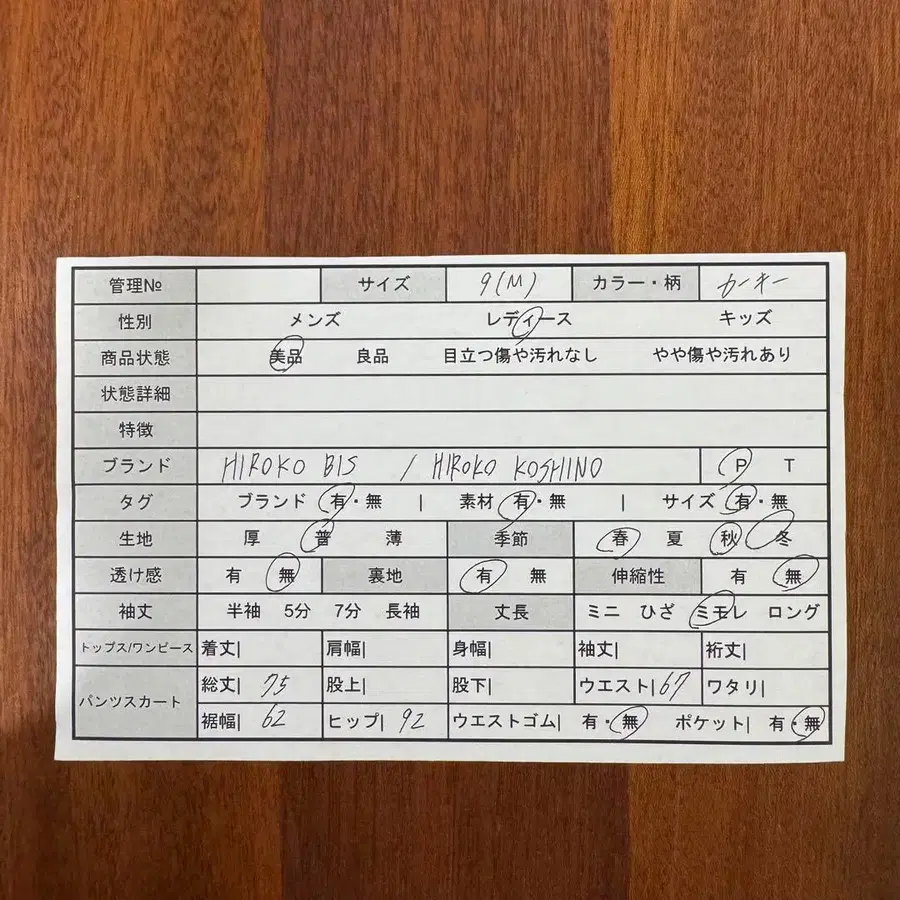 管理№ サイズ 9(M) カラー・柄 カーキー
性別 メンズ レディース キッズ
商品状態 美品 良品 目立つ傷や汚れなし やや傷や汚れあり
状態詳細
特徴
ブランド HIROKO BIS / HIROKO KOSHINO P T
タグ ブランド 有・無 | 素材 有・無 | サイズ 有・無
生地 厚 普 薄 季節 春 夏 秋 冬
透け感 有 無 裏地 有 無 伸縮性 有 無
袖丈 半袖 5分 7分 長袖 丈長 ミニ ひざ ミモレ ロング
トップス/ワンピース 着丈| 肩幅| 身幅| 袖丈| 裄丈|
パンツスカート 総丈| 75 股上| 股下| ウエスト| 67 ワタリ|
裾幅| 62 ヒップ| 92 ウエストゴム| 有・無 ポケット| 有・無